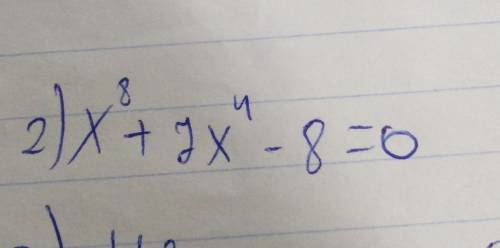 2) x⁸ + 2x⁴ - 8 = 0